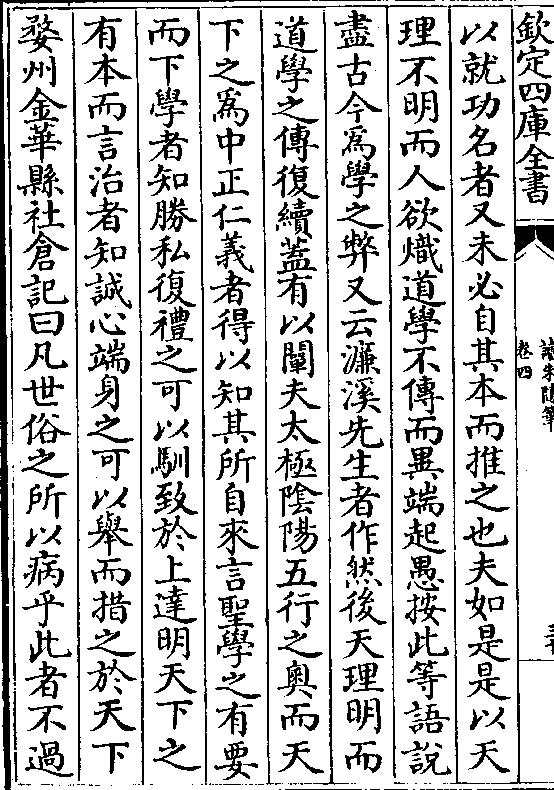 欽定四庫全書
卷四
以就功名者又未必自其本而推之也夫如是是以天
理不明而人欲熾道學不傳而異端起愚按此等語說
盡古今為學之弊又云濂溪先生者作然後天理明而
道學之傳復續蓋有以闡夫太極陰陽五行之奧而天
下之為中正仁義者得以知其所自來言聖學之有要
而下學者知勝私復禮之可以馴致於上達明天下之
有本而言治者知誠心端身之可以舉而措之於天下
婺州金華縣社倉記曰凡世俗之所以病乎此者不過